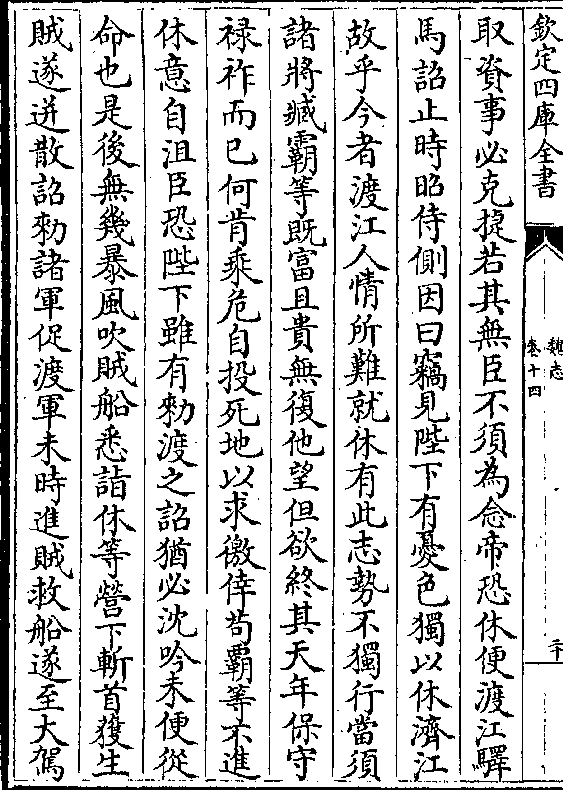 欽定四庫全書
魏志
卷十四
二十
取資事必克捷若其無臣不須為念帝恐休便渡江驛
馬詔止時昭侍側因曰竊見陛下有憂色獨以休濟江
故乎今者渡江人情所難就休有此志勢不獨行當須
諸將臧霸等既富且貴無復他望但欲終其天年保守
禄祚而已何肯乘危自投死地以求徼倖苟霸等不進
休意自沮臣恐陛下雖有勑渡之詔猶必沈吟未便從
命也是後無幾暴風吹賊船悉詣休等營下斬首獲生
賊遂迸散詔勑諸軍促渡軍未時進賊救船遂至大駕